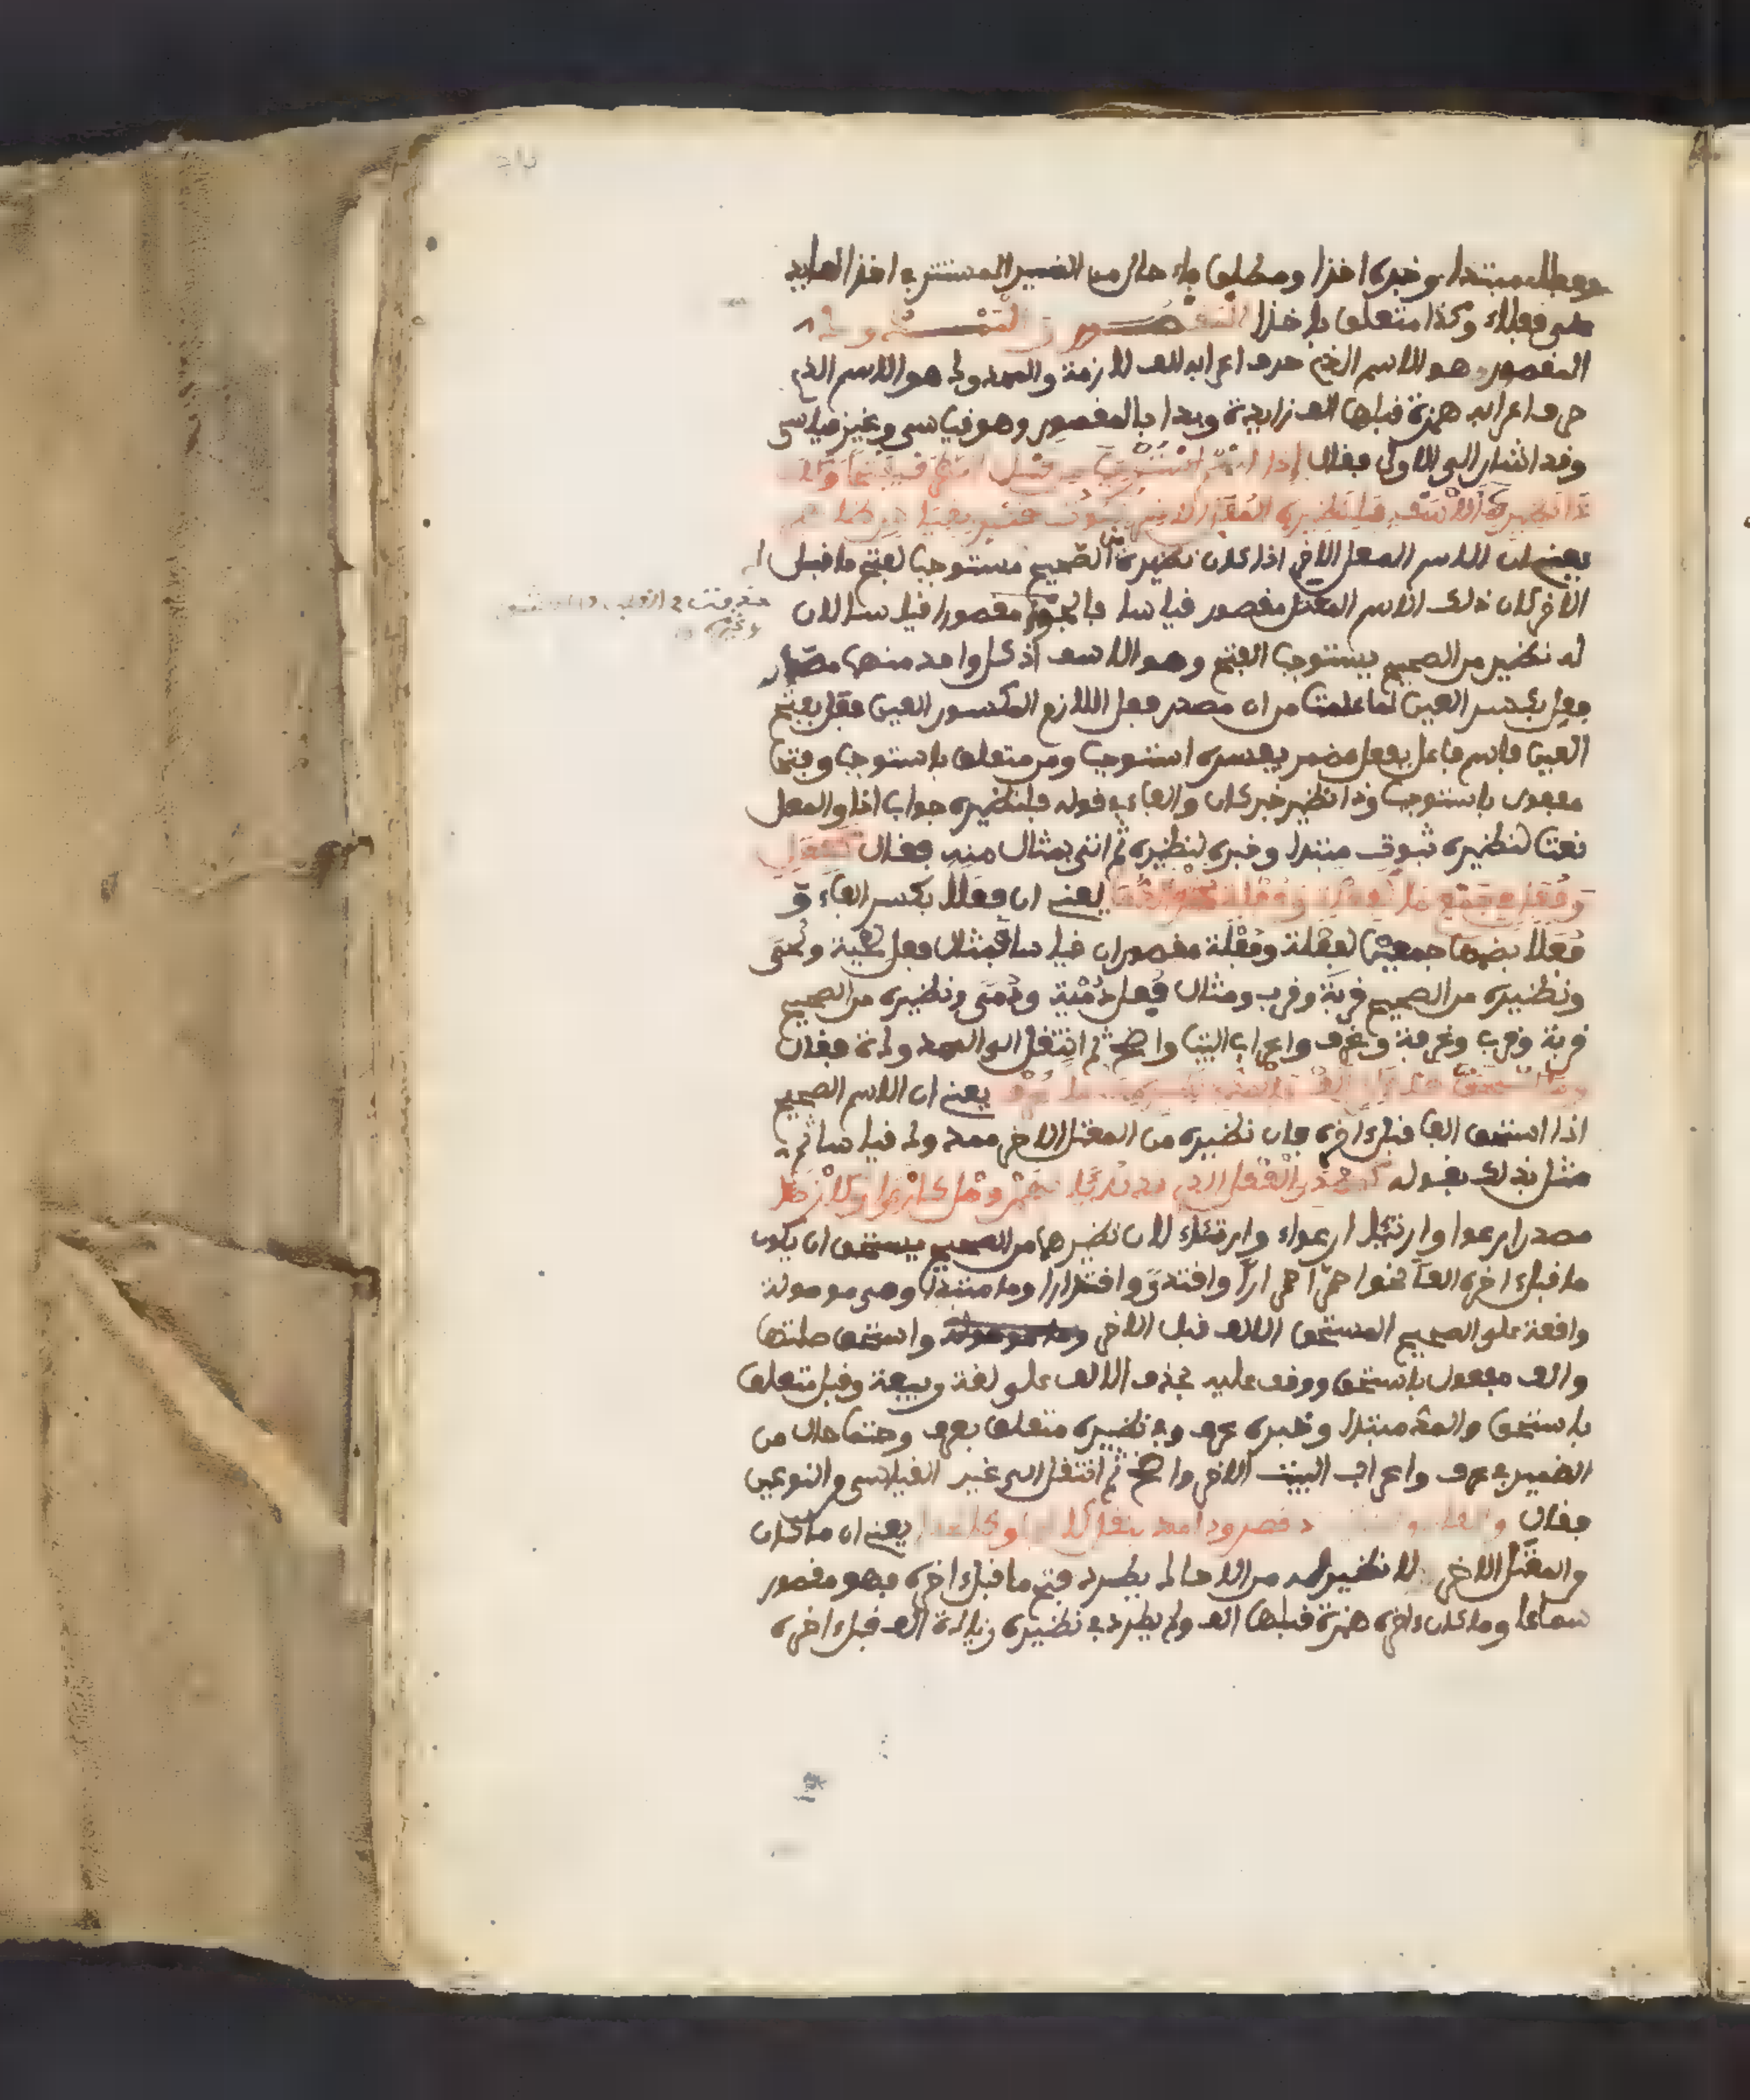 ومطلق مبتدا وخبره اخذا ومطلق باء حال من الضمير المستتر في اخذا العايد
على فعلاء وكذا متعلق باخذا المقصور والممدود
المقصور هو الاسم الذي حرف اعرابه الف لازمة والممدود هو الاسم الذي
حرف اعرابه همزة قبلها الف زايدة وبدا بالمقصور وهو قياسي وغير قياسي
وقد اشار الى الاول فقال إذا اسم استوجب من قبل الطرف فتحا وكان
ذا نظير كالاسف فلنظيره المعل الاخر ثبوت قصر بقياس ظاهر
يعني ان الاسم المعل الاخر اذا كان نظيره من الصحيح مستوجبا لفتح ما قبل
الاخر كان ذلك الاسم المعتل مقصور قياسا فالجوى مقصورا قياسا لان
له نظير من الصحيح يستوجب الفتح وهو الاسف اذ كل واحد منهما مصدر
فعل بكسر العين لما علمت من ان مصدر فعل اللازم المكسور العين فعل بفتح
العين فاسم فاعل بفعل مضمر يفسره استوجب ومن متعلق باستوجب وفتحا
مفعول باستوجب وذا نظير خبر كان والفاء في قوله فلنظيره جواب اذا والمعل
نعت لنظيره ثبوت مبتدا وخبره لنظيره ثم اتى بمثال منه فقال كفعل
وفعل في جمع ما كفعلة وفعلة نحو الدما يعني ان فعلا بكسر الفاء و
فعلا بضمها جمعين لفعلة وفعلة مقصوران قياسا فمثال فعل لحية ولحى
ونظيره من الصحيح قربة وقرب ومثال فعل دمية ودمى ونظيره من الصحيح
قربة وقرب وغرفة وغرف واعراب البيت واضح ثم انتقل الى الممدود فقال
وما استحق قبل اخر الف فالمد في نظيره حتما عرف يعني ان الاسم الصحيح
اذا استحق الفا قبل اخره فان نظيره من المعتل الاخر ممدود قياسا ثم
مثل ذلك بقوله كمصدر الفعل الذي قد بدئا بهمز وصل كارعوى وكارتأى
مصدر ارعوا وارتئا ارعواء وارتئاء لان نظيرهما من الصحيح يستحق ان يكون
ما قبل اخره الفا نحوا حمر احمرارا واقتدر واقتدارا وما مبتدا وهي موصولة
واقعة على الصحيح المستحق الالف قبل الاخر واستحق صلتها
والف مفعول باستحق ووقف عليه بحذف الالف على لغة ربيعة وقبل متعلق
باستحق والمد مبتدا وخبره عرف وفي نظيره متعلق بعرف وحتما حال من
الضمير في عرف واعراب البيت الاخر واضح ثم انتقل الى غير القياسي من النوعين
فقال والعادم النظير ذا قصر وذا مد بنقل كالحجا وكالحذا يعني ان ما كان
من المعتل الاخر لا نظير له من الاحاد يطرد فتح ما قبل اخره فهو مقصور
سماعا وما كان اخره همزة قبلها الف ولم يطرد في نظيره زيادة الف قبل اخره